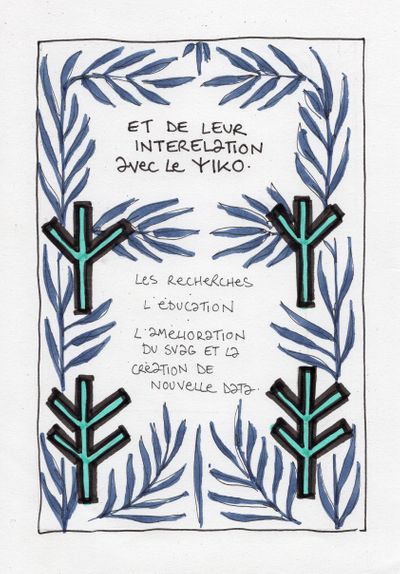 ET DE LEUR
INTERELATION
avec Le YIKO.
Les RecHeRcHes
.
L'éDUCATION
.
L'AMÉLIORATION
DU SVAG ET La
CRÉATION DE
NOUVELLE DaTa.